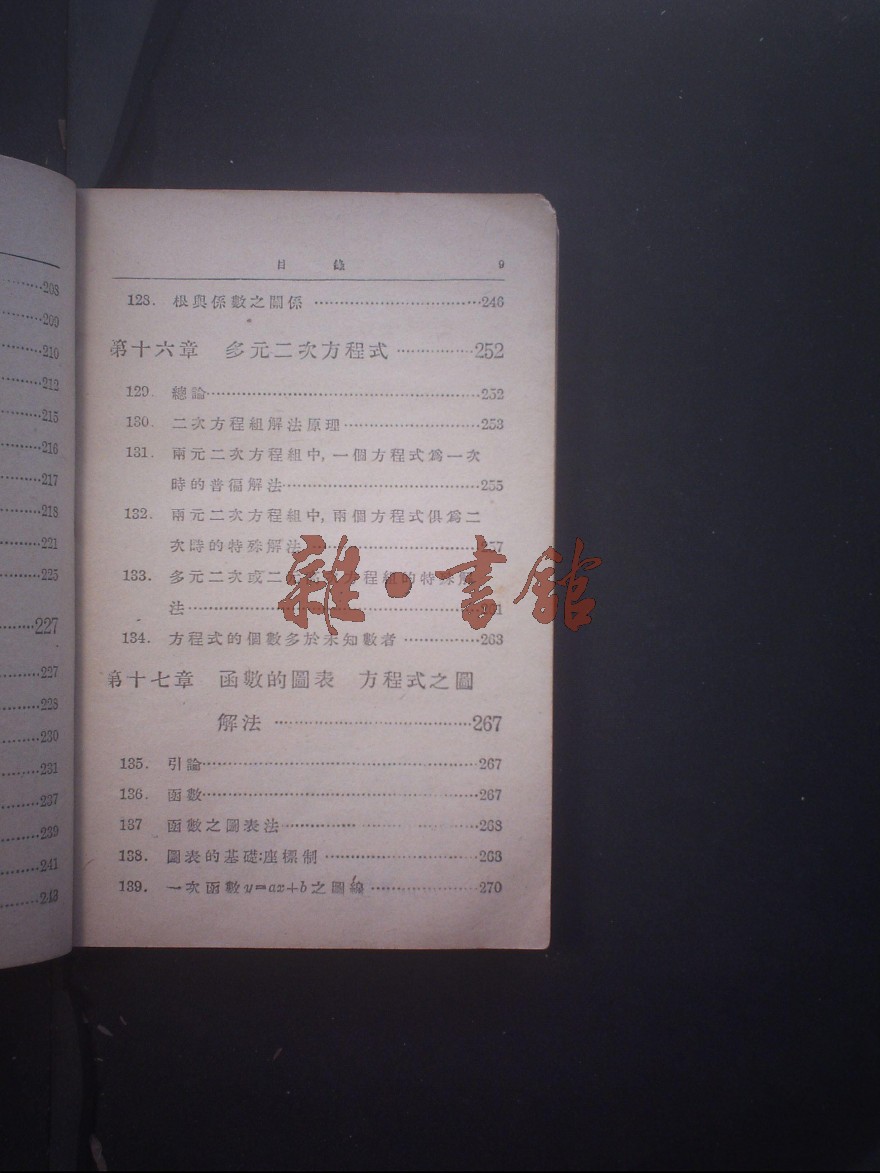 208
209
210
212
215
216
217
218
221
225
227
227
228
230
231
237
239
241
243
目錄 9
128. 根與係數之關係 ················246
第十六章 多元二次方程式 ················252
129. 總論················252
130. 二次方程組解法原理················253
131. 兩元二次方程組中, 一個方程式爲一次
時的普徧解法················255
132. 兩元二次方程組中, 兩個方程式俱爲二
次時的特殊解法················257
133. 多元二次或二 方程組的特殊解
法················
134. 方程式的個數多於未知數者 ················263
第十七章 函數的圖表 方程式之圖
解法 ················267
135. 引論················267
136. 函數················267
137 函數之圖表法················268
138. 圖表的基礎:座標制 ················268
139. 一次函數y=ax+b之圖線 ················270
雜·書館